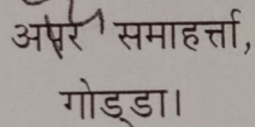 अपर समाहर्त्ता,
गोड्डा।